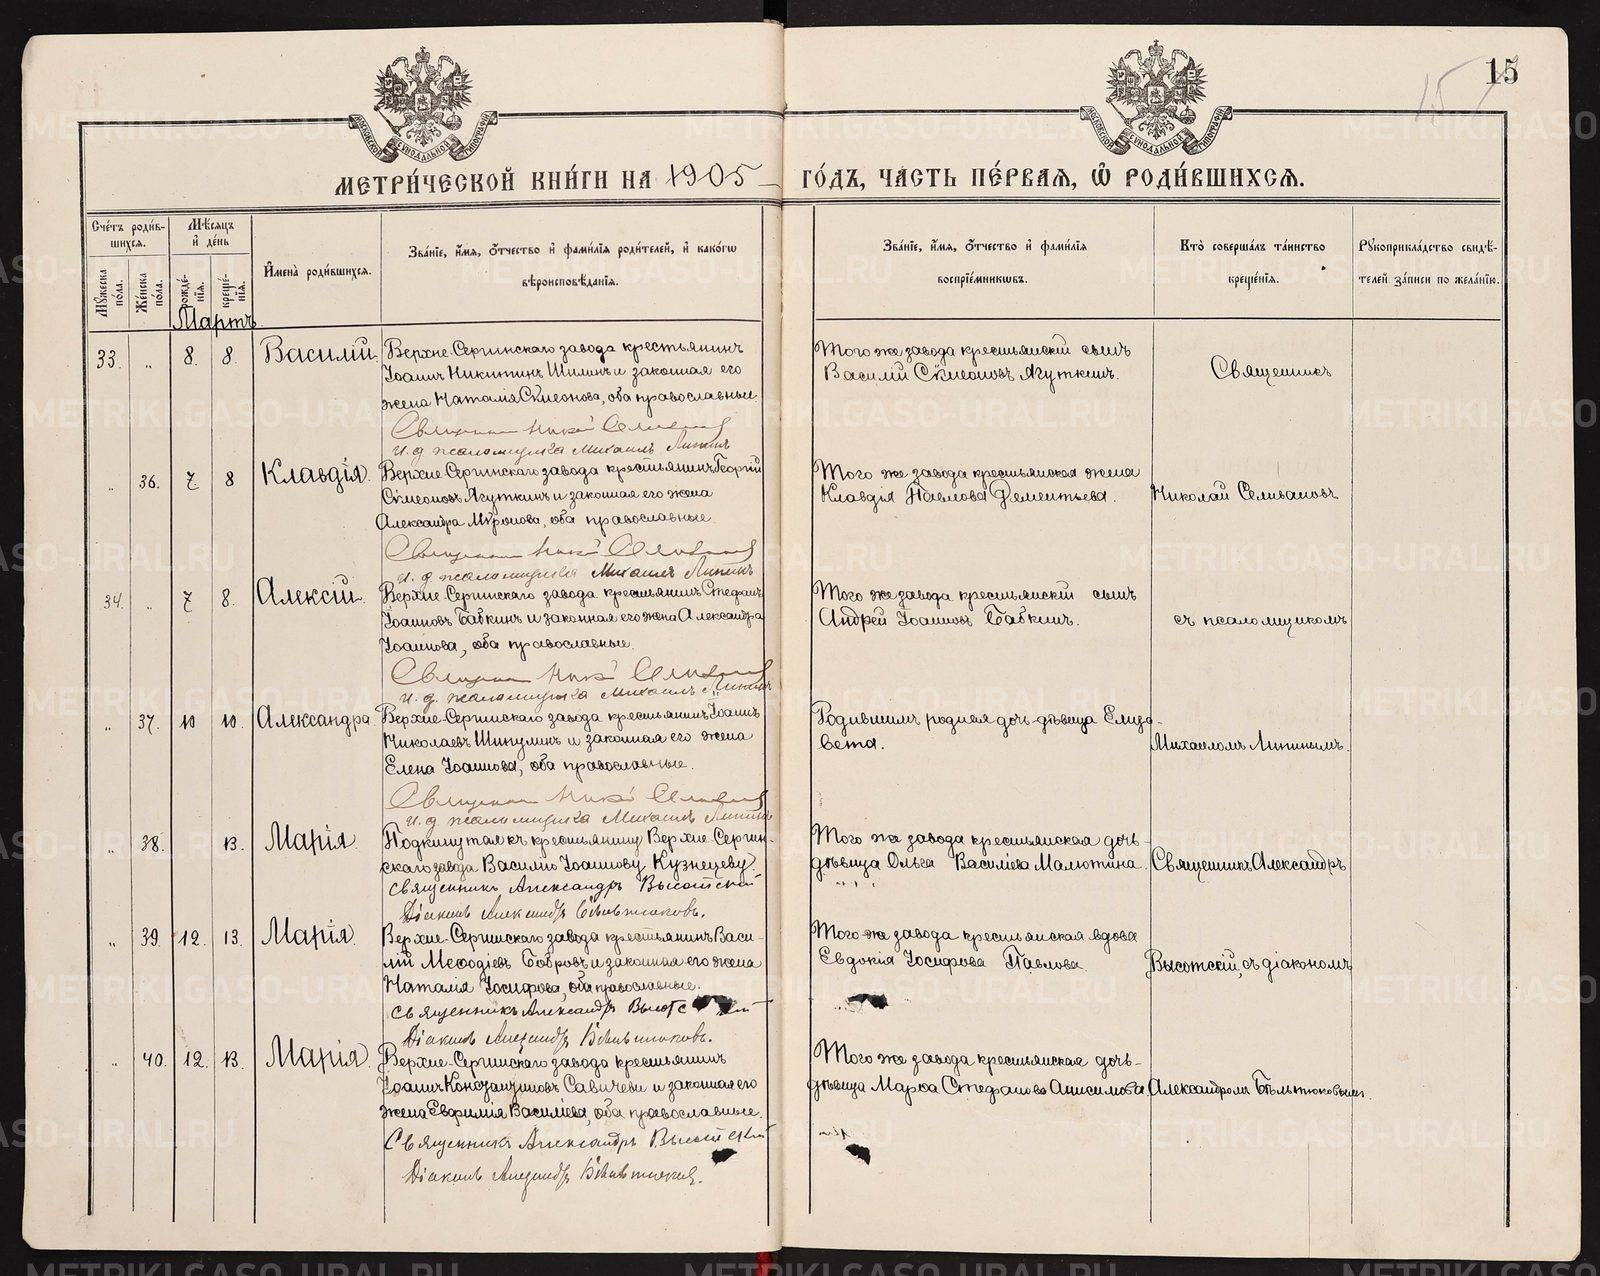 15
МЕТРИ́ЧЕСКОЙ КНИ́ГИ НА 1905
ГО́ДЪ, ЧА́СТЬ ПЕ́РВАЯ, Ѿ РОДИ́ВШИХСЯ.
Сче́тъ роди́в-
шихся.
Му́жеска по́ла.
Же́нска по́ла.
Мѣ́сяцъ
и҆ де́нь
рожде́-
нїя.
креще́-
нїя.
И҆мена̀ роди́вшихся.
Зва́нїе, и҆́мя, ѻ҆́тчество и҆ фами́лїя роди́телей, и҆ како́гѡ
вѣроисповѣ́данїя.
Зва́нїе, и҆́мя, ѻ҆́тчество и҆ фами́лїя
воспрїе́мникѡвъ.
Кто̀ соверша́лъ та́инство
креще́нїя.
Рꙋкоприкла́дство свидѣ́-
телей за́писи по жела́нїю.
Мартъ
33. „ 8. 8. Василій
Верхне-Сергинскаго завода крестьянинъ
Іоаннъ Никитинъ Шилинъ и законная его
жена Наталія Сѵмеонова, оба православные.
Священникъ Никол Селиванов
и. д. псаломщика Михаилъ Липинъ
Того же завода крестьянскій сынъ
Василій Сѵмеоновъ Ягуткинъ.
Священникъ
„ 36. 7 8 Клавдія.
Верхне-Сергинскаго завода крестьянинъ Георгій
Сѵмеоновъ Ягуткинъ и законная его жена
Александра Мѵронова, оба православные.
Священникъ Никол Селиванов
и. д. псаломщика Михаилъ Липинъ
Того же завода крестьянская жена
Клавдія Павлова Дементьева.
Николай Селивановъ
34. „ 7 8. Алексій.
Верхне-Сергинскаго завода крестьянинъ Стефанъ
Іоанновъ Бабкинъ и законная его жена Александра
Іоаннова, оба православные.
Священникъ Никол Селиванов
и. д. псаломщика Михаилъ Липинъ
Того же завода крестьянскій сынъ
Андрей Іоанновъ Бабкинъ.
съ псаломщикомъ
„ 37. 10 10. Александра.
Верхне-Сергинскаго завода крестьянинъ Іоаннъ
Николаевъ Шипулинъ и законная его жена
Елена Іоаннова, оба православные.
Священникъ Никол Селиванов
и. д. псаломщика Михаилъ Липинъ
Родившимъ родная дочь дѣвица Елиза-
вета.
Михаиломъ Липинымъ.
„ 38. 13. Марія
Подкинутая къ крестьянину Верхне-Сергин-
скаго завода Василію Іоаннову Кузнецеву.
Священникъ Александръ Высотскій
Діаконъ Александръ Бѣльтюковъ.
Того же завода крестьянская дочь-
дѣвица Ольга Василіева Малютина.
Священникъ Александръ
„ 39. 12. 13. Марія.
Верхне-Сергинскаго завода крестьянинъ Васи-
лій Меѳодіевъ Бобровъ и законная его жена
Наталія Іосифова, оба православные.
Священникъ Александръ Высотскій
Діаконъ Александръ Бѣльтюковъ.
Того же завода крестьянская вдова
Евдокія Іосифова Павлова.
Высотскій, съ діакономъ
„ 40. 12. 13. Марія.
Верхне-Сергинскаго завода крестьянинъ
Іоаннъ Константиновъ Савичевъ и законная его
жена Евфимія Василіева, оба православные.
Священникъ Александръ Высотскій
Діаконъ Александръ Бѣльтюковъ.
Того же завода крестьянская дочь-
дѣвица Марѳа Стефанова Анисимова.
Александромъ Бѣльтюковымъ.
METRIKI.GASO-URAL.RU